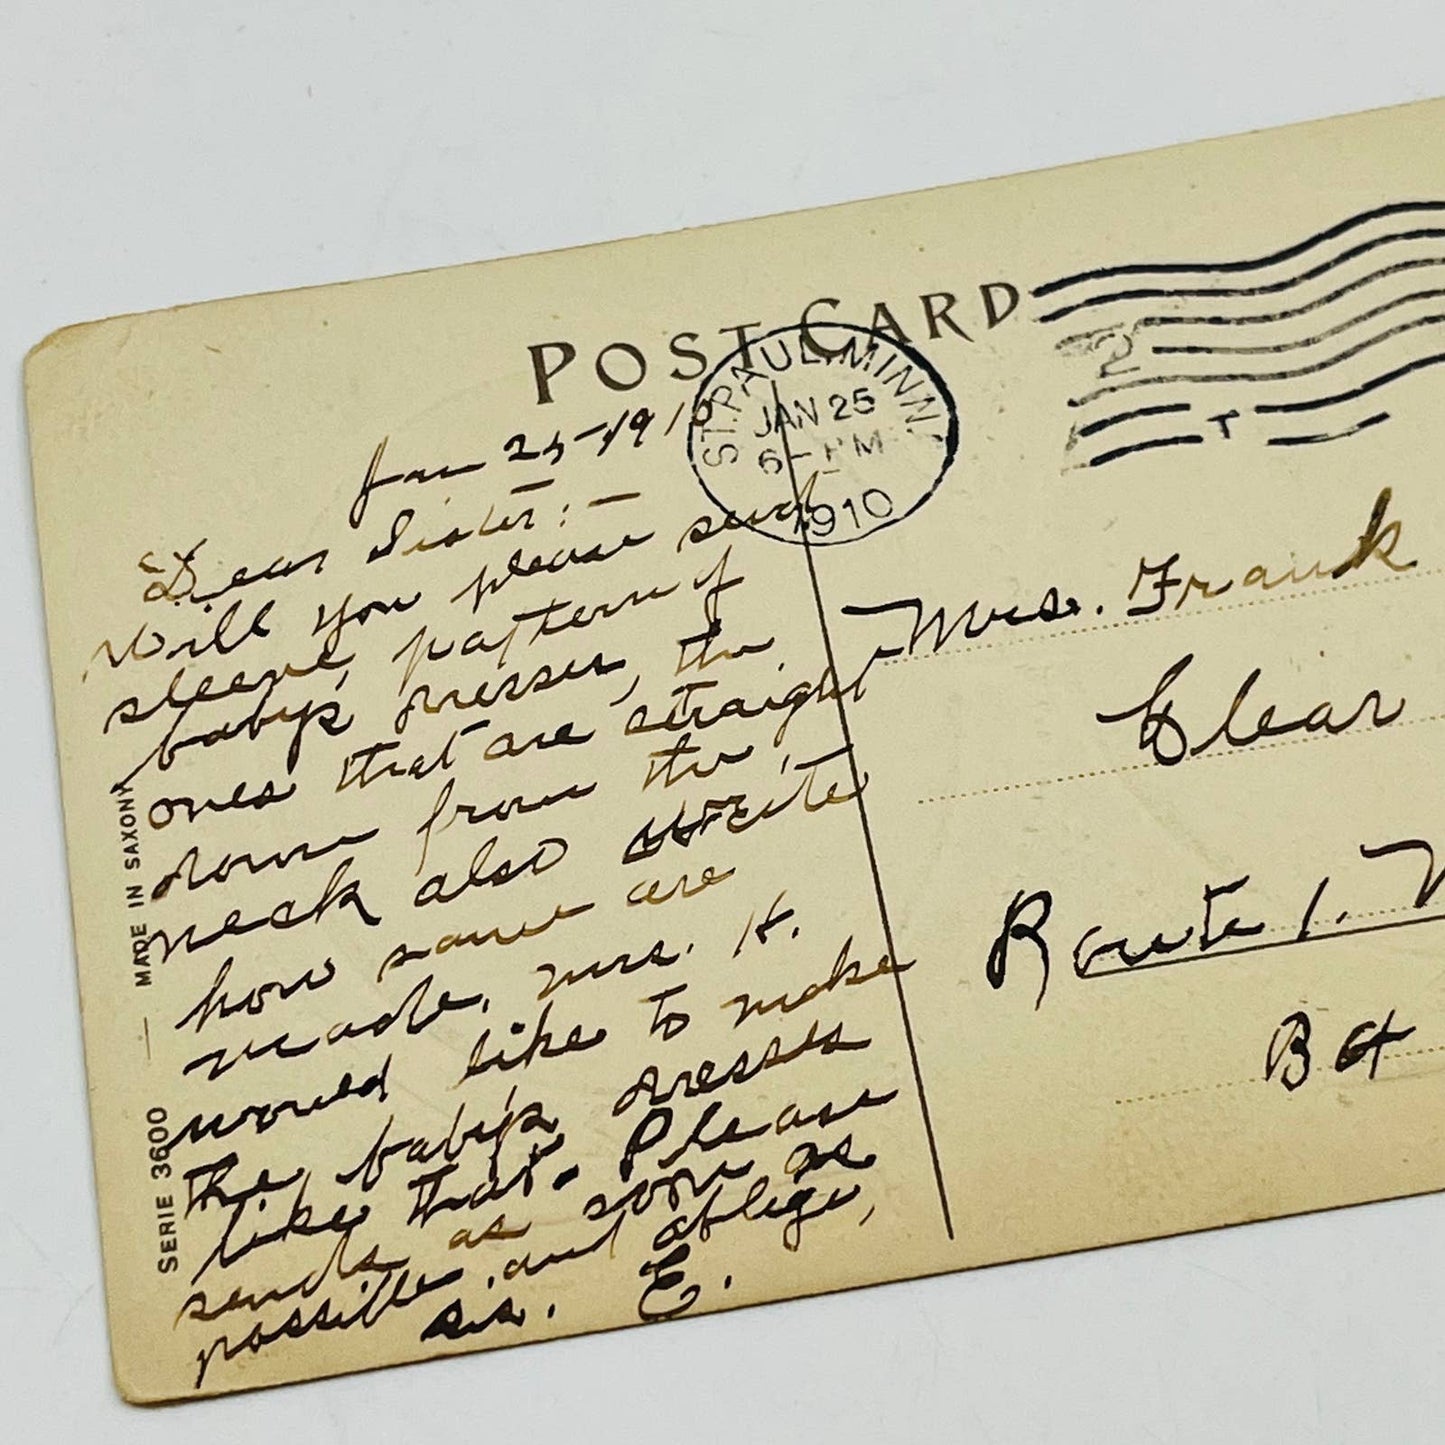 POST CARD
ST. PAUL, MINN.
JAN 25
6 - PM
1910
2
T
Jan 25-1910
Dear Sister: -
Will you please send
sleeve, pattern of
baby's dresses, the
ones that are straight
down from the
neck also write
how same are
made, Mrs. H.
would like to make
the baby's dresses
like that. Please
send as soon as
possible, and oblige,
sis. E.
Mrs. Frank
Clear
Route 1.
B
SERIE 3600 — MADE IN SAXONY